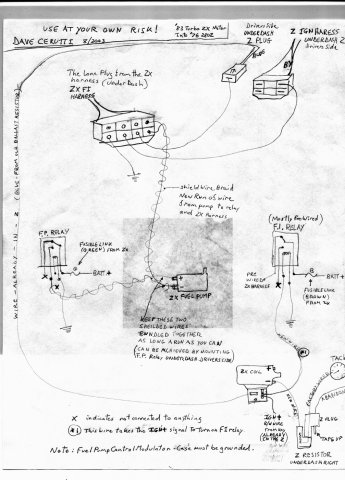 USE AT YOUR OWN RISK!
DAVE CERUTTI 8/2002
'83 Turbo ZX Motor
Into '76 280Z
Drivers Side
UNDERDASH
Z PLUG
Z IGN HARNESS
UNDERDASH Z
Driver Side
The Long Plug from the ZX
harness (under Dash)
ZX FI
HARNESS
WIRE - ALREADY - IN - Z (PLUG - FROM OLD BALLAST RESISTOR)
shield Wire Braid
New Run of wire
from pump to relay
and ZX Harness
F.P. RELAY
FUSIBLE LINK
(GREEN) FROM ZX
BATT +
X
(Mostly Pre Wired)
F.I. RELAY
PRE
WIRED IN
ZX HARNESS
X
BATT +
FUSIBLE LINK
(BROWN)
FROM ZX
ZX FUEL PUMP
KEEP THESE TWO
SHIELDED WIRES
BUNDLED TOGETHER
AS LONG A RUN AS YOU CAN
(CAN BE ACHIEVED BY MOUNTING
F.P. Relay UNDERDASH DRIVERSIDE)
ZX COIL
+
IGN +
B/W WIRE
from key
ALREADY
IN THE Z
TACH
Z PLUG
TAPE UP
Z RESISTOR
UNDERDASH RIGHT
X indicates not connected to anything
#1 This wire takes the IGN + signal to Turn on F.I relay
Note: Fuel Pump Control Modulator - Case must be grounded.